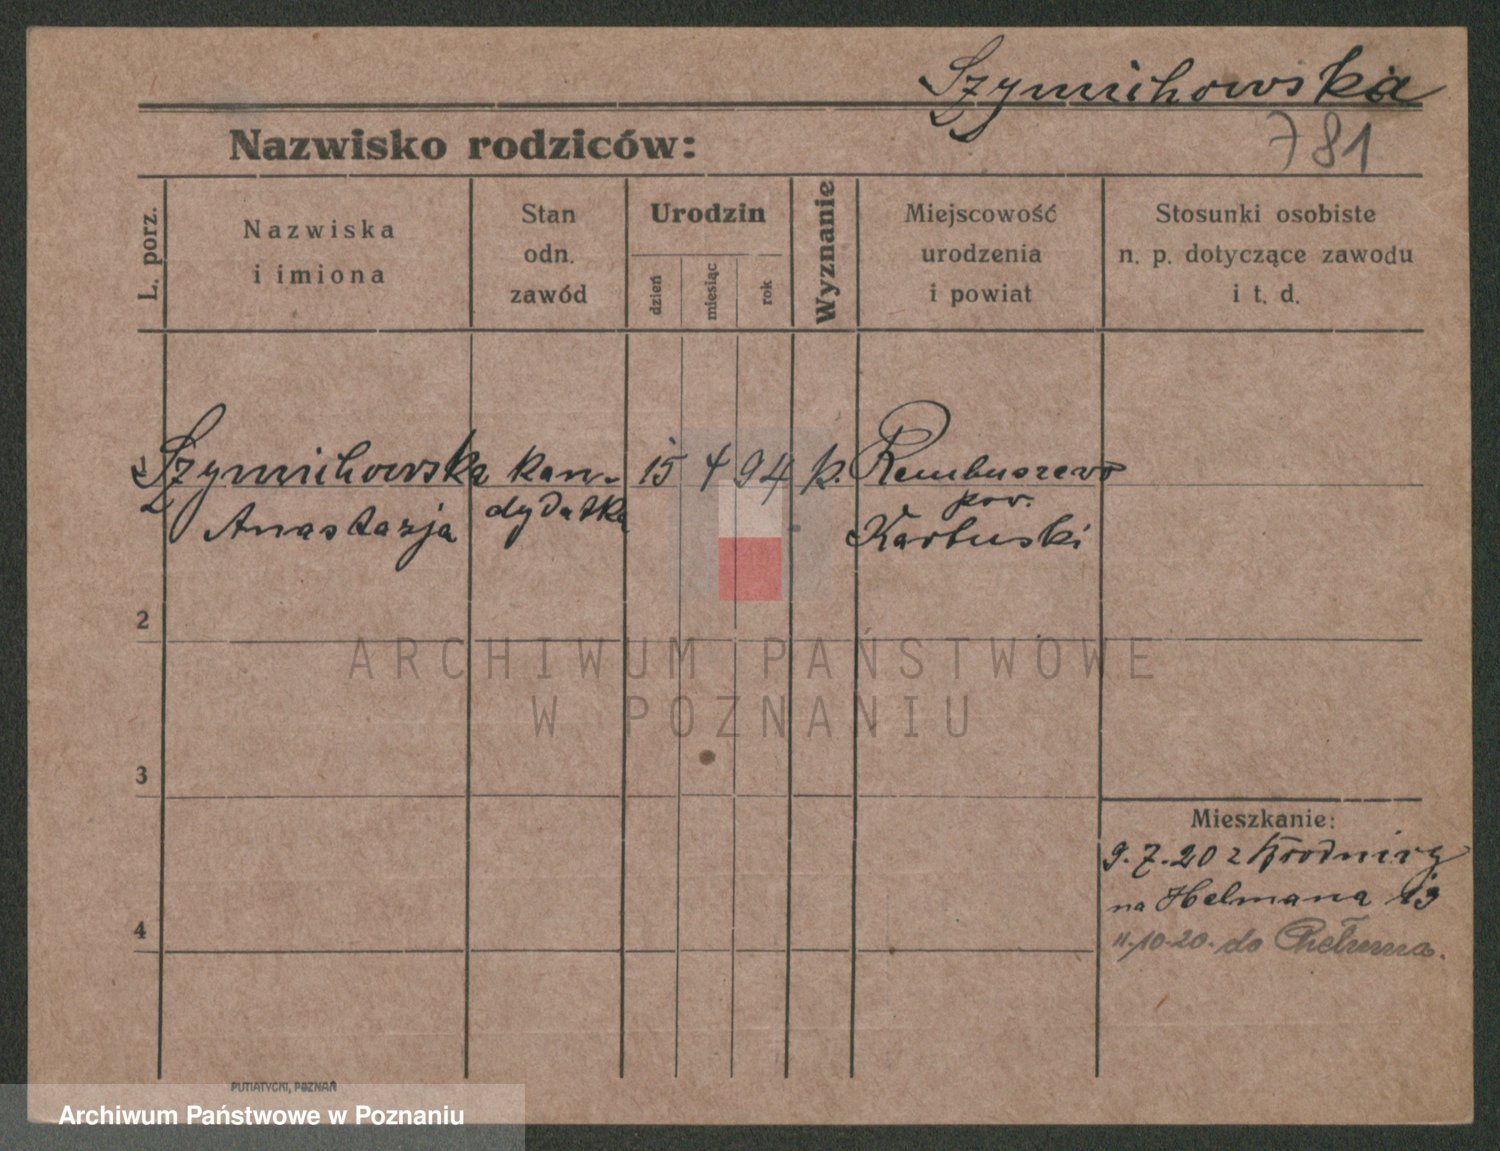 Szymichowska
781
Nazwisko rodziców:
L. porz.
Nazwiska
i imiona
Stan
odn.
zawód
Urodzin
dzień
miesiąc
rok
Wyznanie
Miejscowość
urodzenia
i powiat
Stosunki osobiste
n. p. dotyczące zawodu
i t. d.
Szymichowska kan- 15 4 94 k. Rembuszewo
Anastazja dydatka pow.
Kartuski
2
ARCHIWUM PAŃSTWOWE
W POZNANIU
3
Mieszkanie:
9.7.20 z Brodnicy
na Helmana 13
4
11.10.20. do Chełmna.
PUTIATYCKI, POZNAŃ
Archiwum Państwowe w Poznaniu